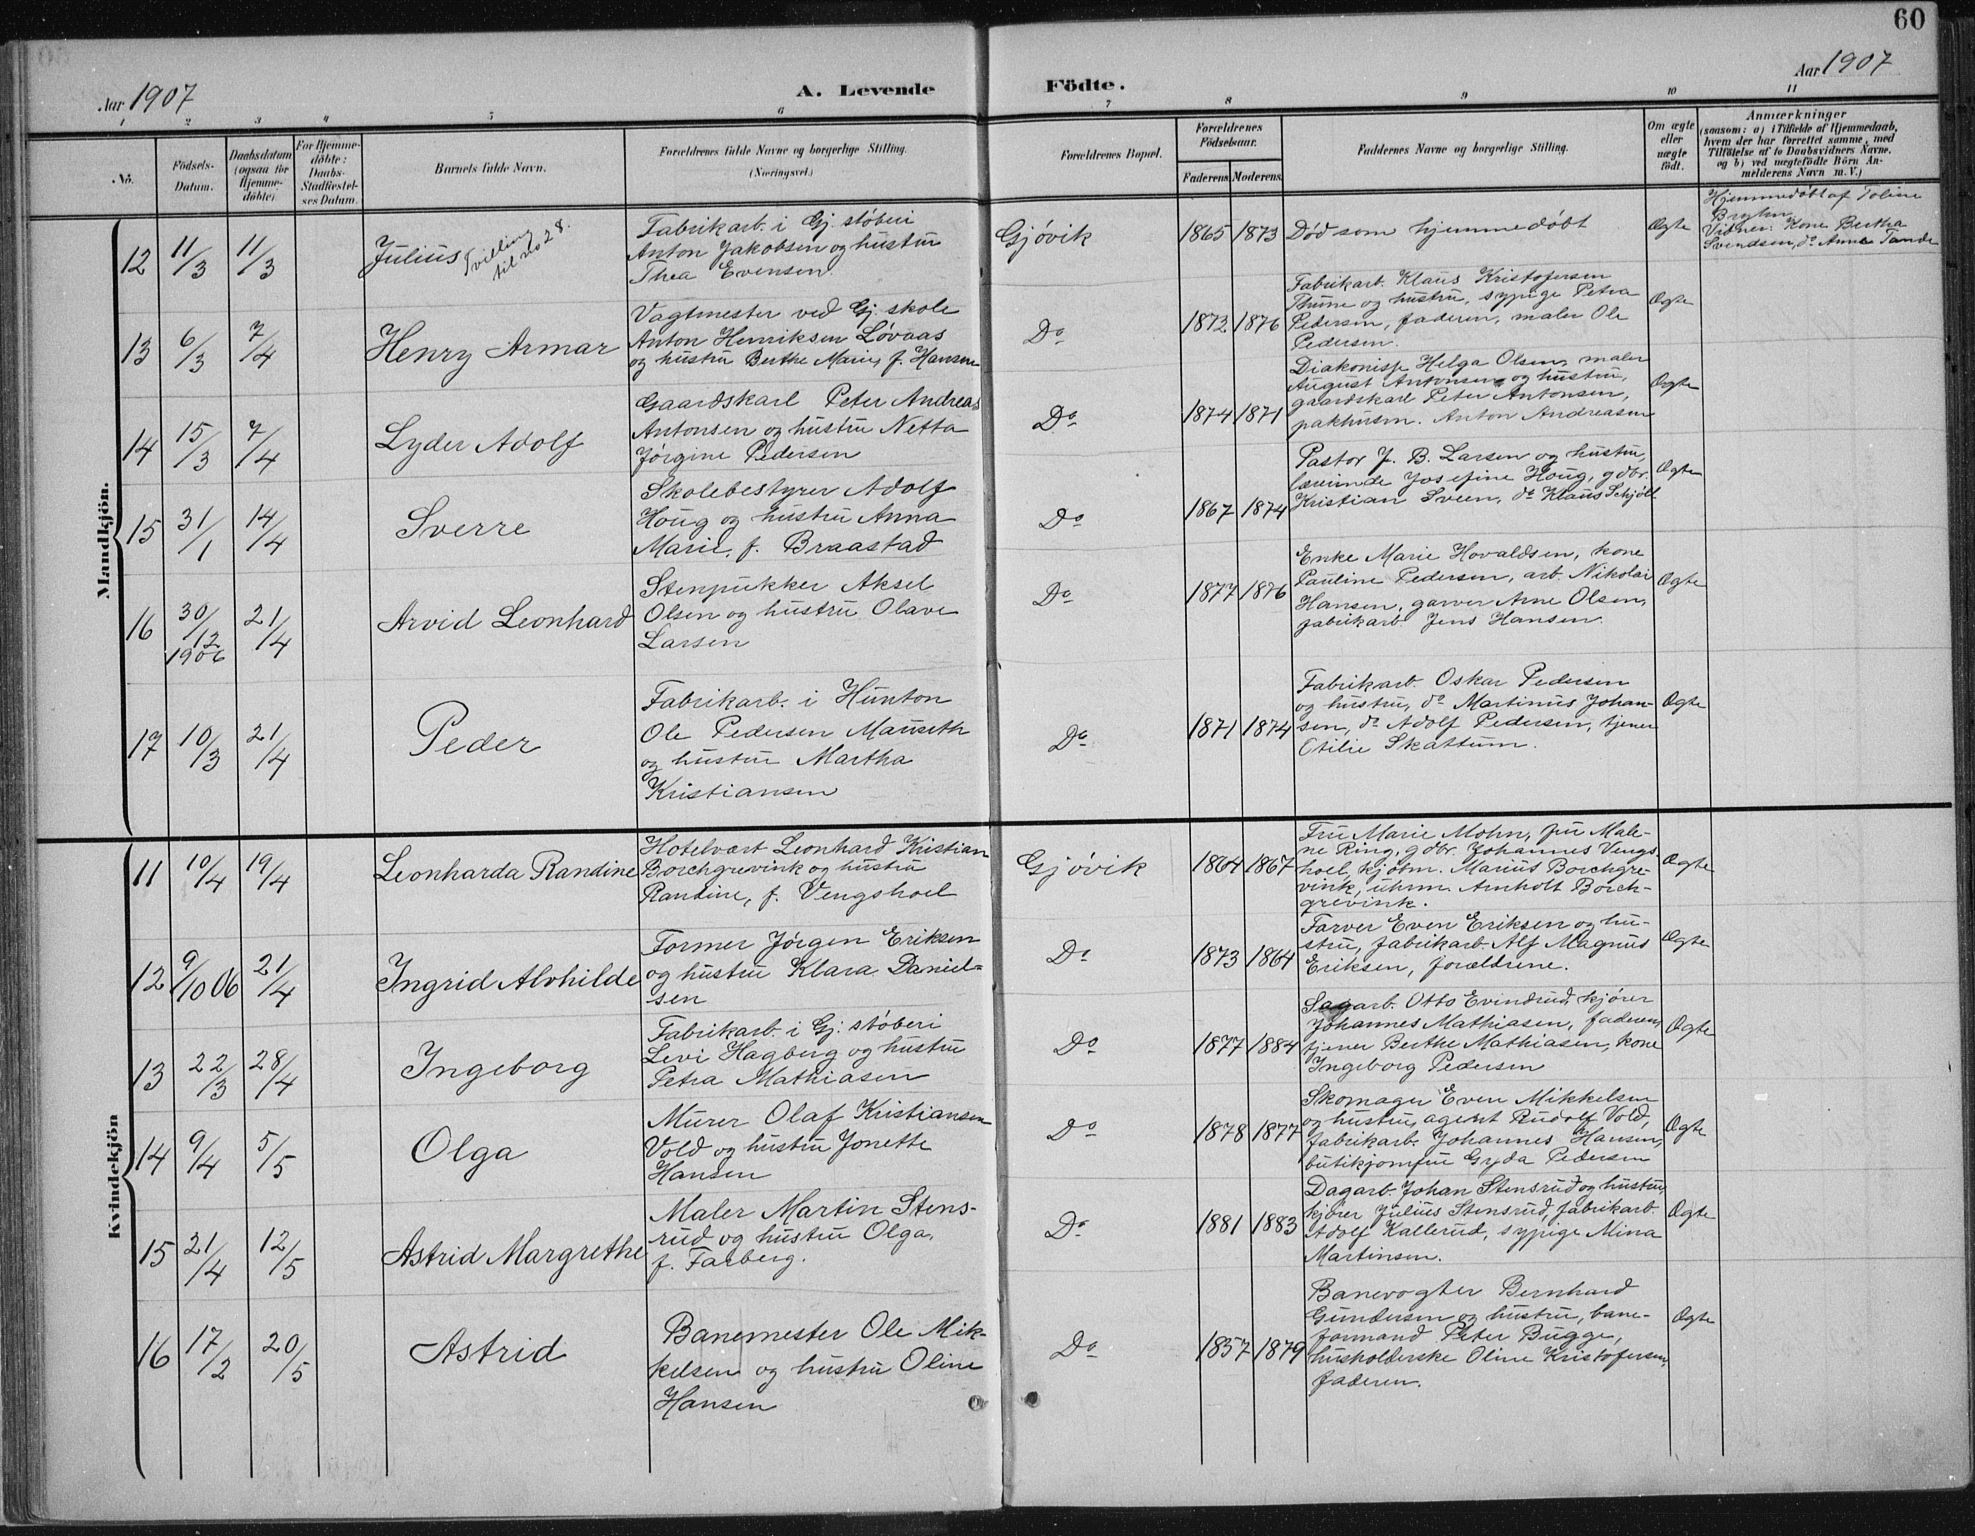 60
Aar 1907
A. Levende
Födte.
Aar 1907
1 2 3 4 5 6 7 8 9 10 11
No.
Födsels-
Datum.
Daabsdatum
(ogsaa för
Hjemme-
döbte)
For Hjemme-
döbte:
Daabs-
Stadfæstel-
ses Datum.
Barnets fulde Navn.
Forældrenes fulde Navne og borgerlige Stilling.
(Næringsvei.)
Forældrenes Bopæl.
Forældrenes
Födselsaar.
Faderens. Moderens.
Faddernes Navne og borgerlige Stilling.
Om ægte
eller
uægte
födt.
Anmærkninger
(saasom: a) i Tilfælde af Hjemmedaab,
hvem der har forrettet samme, med
Tilföielse af to Daabsvidners Navne,
og b) ved uægtefödte Börn An-
melderens Navn m. V.)
Mandkjön.
12 11/3 11/3
Julius Tvilling
til no 28.
Fabrikarb. i Gj. støberi
Anton Jakobsen og hustru
Thea Evensen
Gjøvik
1865 1873
Død som hjemmedøbt
Ægte
Hjemmedøbt af Toline
Vidner: Kone Bertha
Svendsen, do Anne Tande
13 6/3 7/4
Henry Armar
Vagtmester ved Gj. skole
Anton Henriksen Løvaas
og hustru Berthe Marie, f. Hansen
Do
1872 1876
Fabrikarb. Klaus Kristofersen
Thune og hustru, sypige Petra
Pedersen, faderen, maler Ole
Pedersen.
Ægte
14 15/3 7/4
Lyder Adolf
Gaardskarl Peter Andreas
Antonsen og hustru Netta
Jørgine Pedersen
Do
1874 1871
Diakonisse Helga Olsen, maler
August Antonsen og hustru,
gaardskarl Peter Antonsen,
pakhusm. Anton Andreasen
Ægte
15 31/1 14/4
Sverre
Skolebestyrer Adolf
Houg og hustru Anna
Marie, f. Braastad
Do
1867 1874
Pastor J. B. Larsen og hustru,
lærerinde Josefine Houg, gdbr.
Kristian Sveen, do Klaus Schjøll
Ægte
16 30/12 1906 21/4
Arvid Leonhard
Stenpukker Aksel
Olsen og hustru Olave
Larsen
Do
1877 1876
Enke Marie Hovaldsen, kone
Pauline Pedersen, arb. Nikolai
Hansen, garver Arne Olsen,
fabrikarb. Jens Hansen.
Ægte
17 10/3 21/4
Peder
Fabrikarb. i Hunton
Ole Pedersen Mauseth
og hustru Martha
Kristiansen
Do
1871 1874
Fabrikarb. Oskar Pedersen
og hustru, do Martinus Johan-
sen, do Adolf Pedersen, tjener
Otilie Skattum.
Ægte
Kvindekjön
11 10/4 19/4
Leonharda Randine
Hotelvært Leonhard Kristian
Borchgrevink og hustru
Randine, f. Vengshoel
Gjøvik
1864 1867
Fru Marie Mohn, fru Male-
ne Ring, gdbr. Johannes Vengs-
hoel, kjøbm. Marius Borchgre-
vink, uhrm. Arnholt Borch-
grevink.
Ægte
12 9/10 06 21/4
Ingrid Alvhilde
Former Jørgen Eriksen
og hustru Klara Daniel-
sen
Do
1873 1864
Farver Even Eriksen og hu-
stru, fabrikarb. Alf Magnus
Eriksen, forældrene.
Ægte
13 22/3 28/4
Ingeborg
Fabrikarb. i Gj. støberi
Levi Hagberg og hustru
Petra Mathiasen
Do
1877 1884
Sagarb. Otto Evindrud, kjører
Johannes Mathiasen, faderen,
tjener Berthe Mathiasen, kone
Ingeborg Pedersen
Ægte
14 9/4 5/5
Olga
Murer Olaf Kristiansen
Vold og hustru Jonette
Hansen
Do
1878 1877
Skomager Even Mikkelsen
og hustru, agent Rudolf Vold,
fabrikarb. Johannes Hansen,
butikjomfru Gyda Pedersen
Ægte
15 21/4 12/5
Astrid Margrethe
Maler Martin Stens-
rud og hustru Olga,
f. Farberg.
Do
1881 1883
Dagarb. Johan Stensrud og hustru,
kjører Julius Stensrud, fabrikarb.
Adolf Kallerud, sypige Mina
Martinsen.
Ægte
16 17/2 20/5
Astrid
Banemester Ole Mik-
kelsen og hustru Oline
Hansen
Do
1857 1879
Banevogter Bernhard
Gundersen og hustru, bane-
formand Peter Bugge,
husholderske Oline Kristofersen,
faderen.
Ægte